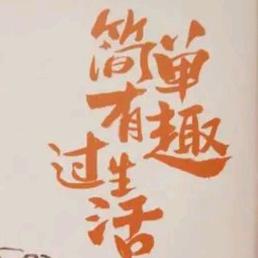 简单
有趣
过生活